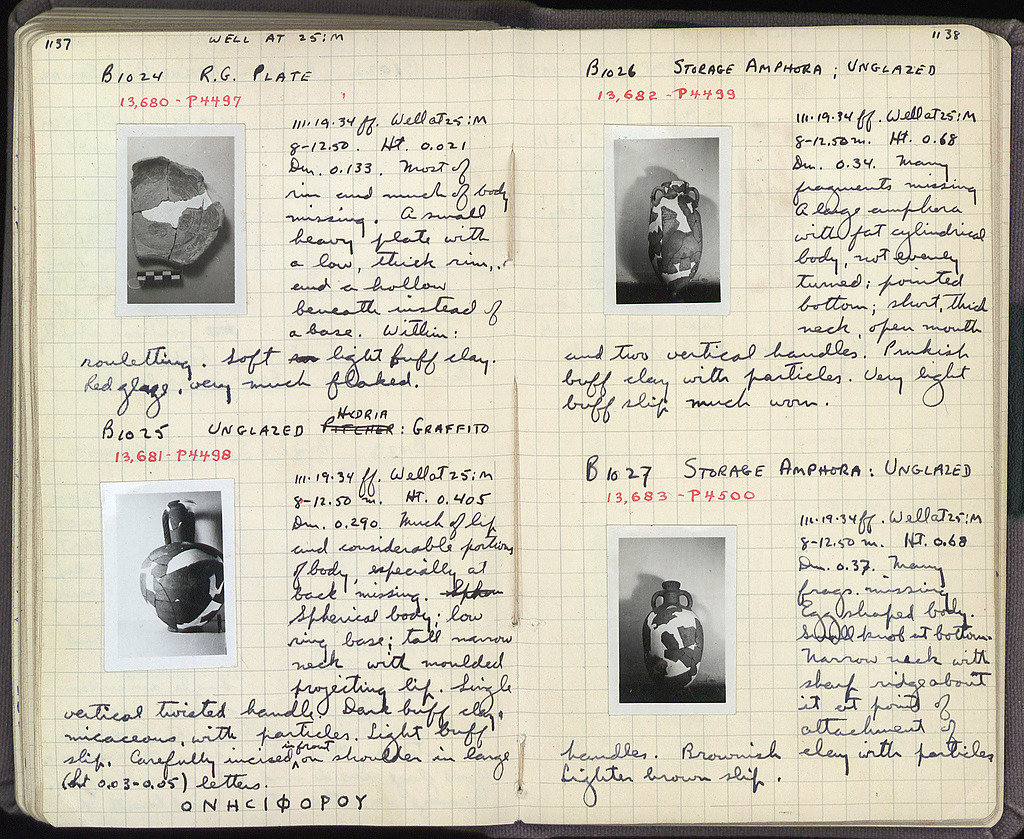 1137
WELL AT 25:M
B1024 R.G. PLATE
13,680 - P4497
111.19.34 ff. Well at 25:M
8-12.50. Ht. 0.021
Dm. 0.133. Most of
rim and much of body
missing. A small
heavy plate with
a low, thick rim,
and a hollow
beneath instead of
a base. Within:
rouletting. Soft light buff clay.
Red glaze, very much flaked.
HYDRIA
B1025 UNGLAZED PITCHER: GRAFFITO
13,681 - P4498
111.19.34 ff. Well at 25:M
8-12.50 m. Ht. 0.405
Dm. 0.290. Much of lip
and considerable portions
of body, especially at
back missing. Sphe
Spherical body; low
ring base; tall narrow
neck with moulded
projecting lip. Single
vertical twisted handle. Dark buff clay,
micaceous, with particles. Light buff
in front
slip. Carefully incised on shoulder in large
(ht 0.03-0.05) letters.
ΟΝΗCΙΦΟΡΟΥ
1138
B1026 STORAGE AMPHORA; UNGLAZED
13,682 - P4499
111.19.34 ff. Well at 25:M
8-12.50 m. Ht. 0.68
Dm. 0.34. Many
fragments missing
A large amphora
with fat cylindrical
body, not evenly
turned; pointed
bottom; short, thick
neck, open mouth
and two vertical handles. Pinkish
buff clay with particles. Very light
buff slip much worn.
B1027 STORAGE AMPHORA: UNGLAZED
13,683 - P4500
111.19.34 ff. Well at 25:M
8-12.50 m. Ht. 0.68
Dm. 0.37. Many
frags. missing
Egg shaped body.
Small knob at bottom.
Narrow neck with
sharp ridge about
it at point of
attachment of
handles. Brownish clay with particles
Lighter brown slip.